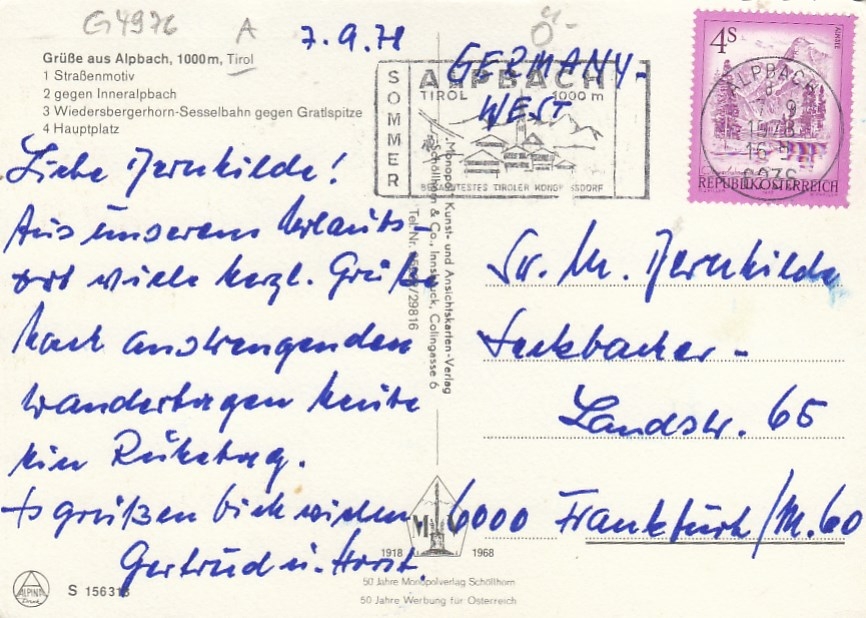 G4976
A
Ö-
7.9.78
Grüße aus Alpbach, 1000 m, Tirol
1 Straßenmotiv
2 gegen Inneralpbach
3 Wiedersbergerhorn-Sesselbahn gegen Gratlspitze
4 Hauptplatz
SOMMER
ALPBACH
TIROL 1000 m
GERMANY-
WEST
4S
REPUBLIK ÖSTERREICH
ALPBACH
6236
Liebe
Aus unserem Urlaubs-
ort viele herzl. Grüße
Nach anstrengenden
Wandertagen heute
ein Ruhetag.
Es grüßen Dich
Gertrud u. Horst.
Monopol Kunst- und Ansichtskarten-Verlag
Schöllhorn & Co., Innsbruck, Colingasse 6
Tel. Nr. /29816
Seckbacher-
Landstr. 65
6000 Frankfurt/M. 60
1918 1968
50 Jahre Monopolverlag Schöllhorn
50 Jahre Werbung für Österreich
ALPINA
S 156313